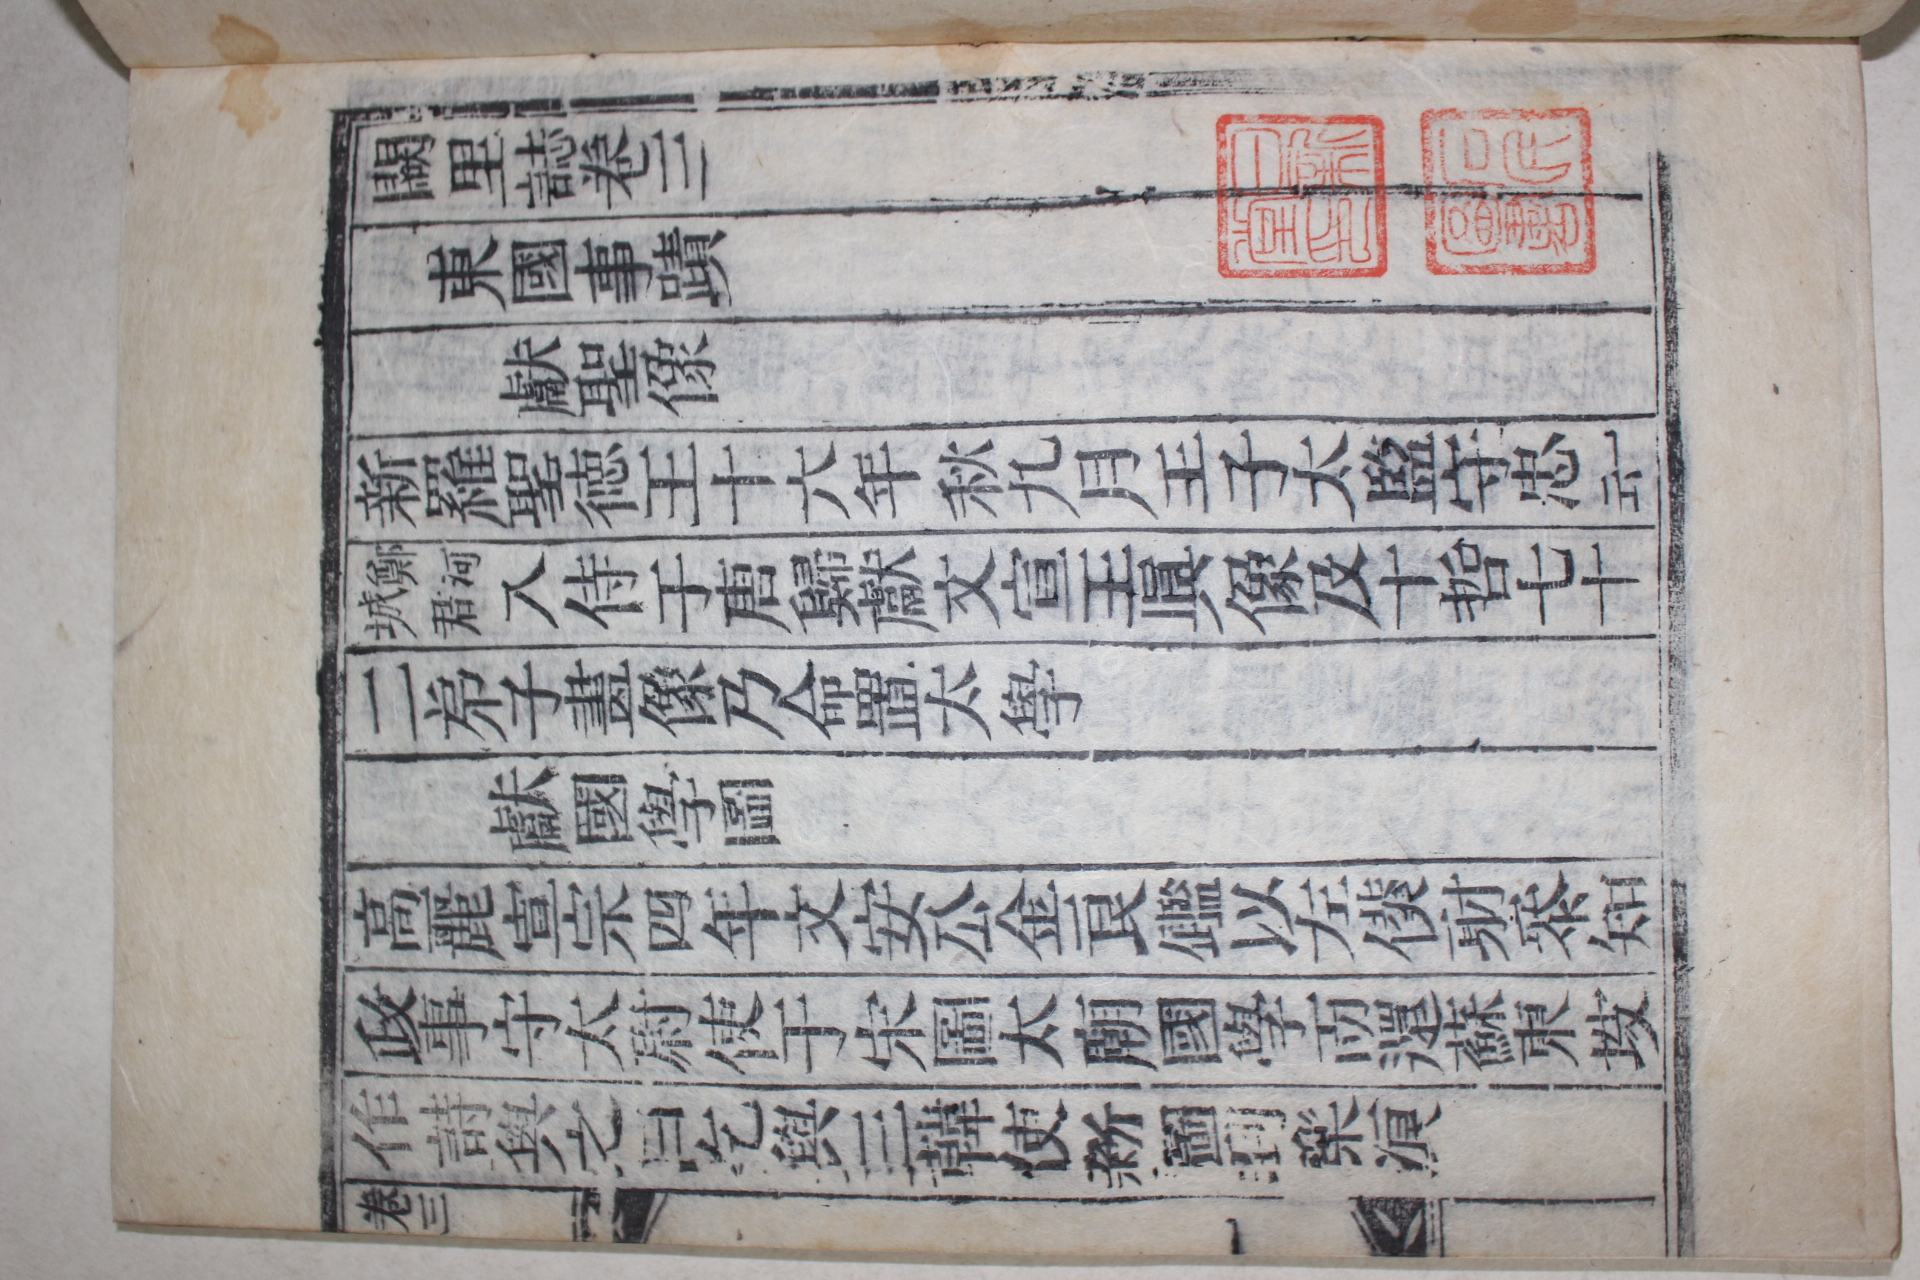 闕里誌卷三
東國事蹟
獻聖像
新羅聖德王十六年秋九月王子太監守忠一云
鄭河城君入侍于唐歸獻文宣王眞像及十哲七十
二弟子畫像乃命置太學
獻國學圖
高麗宣宗四年文安公金良鑑以左僕射叅知
政事守太尉使于宋圖太廟國學而還蘇東坡
作詩與之曰乞與三韓使新圖到樂浪
卷三
一
日新堂印